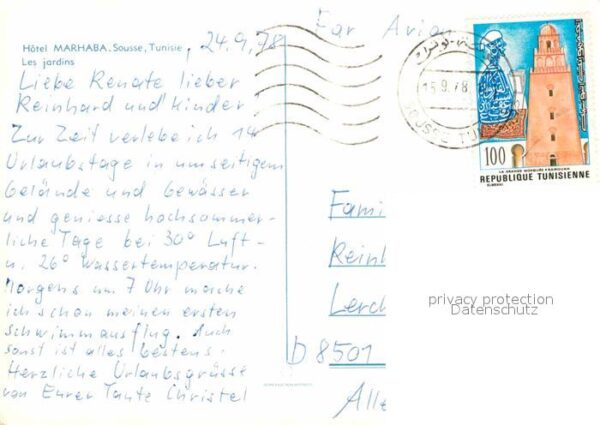 Hôtel MARHABA_Sousse, Tunisie
Les jardins
24.9.78
Liebe Renate lieber
Reinhard und Kinder!
Zur Zeit verlebe ich 14
Urlaubstage in umseitigem
Gelände und Gewässer
und geniesse hochsommer-
liche Tage bei 30° Luft-
u. 26° Wassertemperatur.
Morgens um 7 Uhr mache
ich schon meinen ersten
Schwimmausflug. Auch
sonst ist alles bestens.
Herzliche Urlaubsgrüsse
von Eurer Tante Christel
Par Avion
15.9.78
100
LA GRANDE MOSQUÉE KAIROUAN
REPUBLIQUE TUNISIENNE
Fami
Reinh
Lerch
D 8501
Alle
privacy protection
Datenschutz